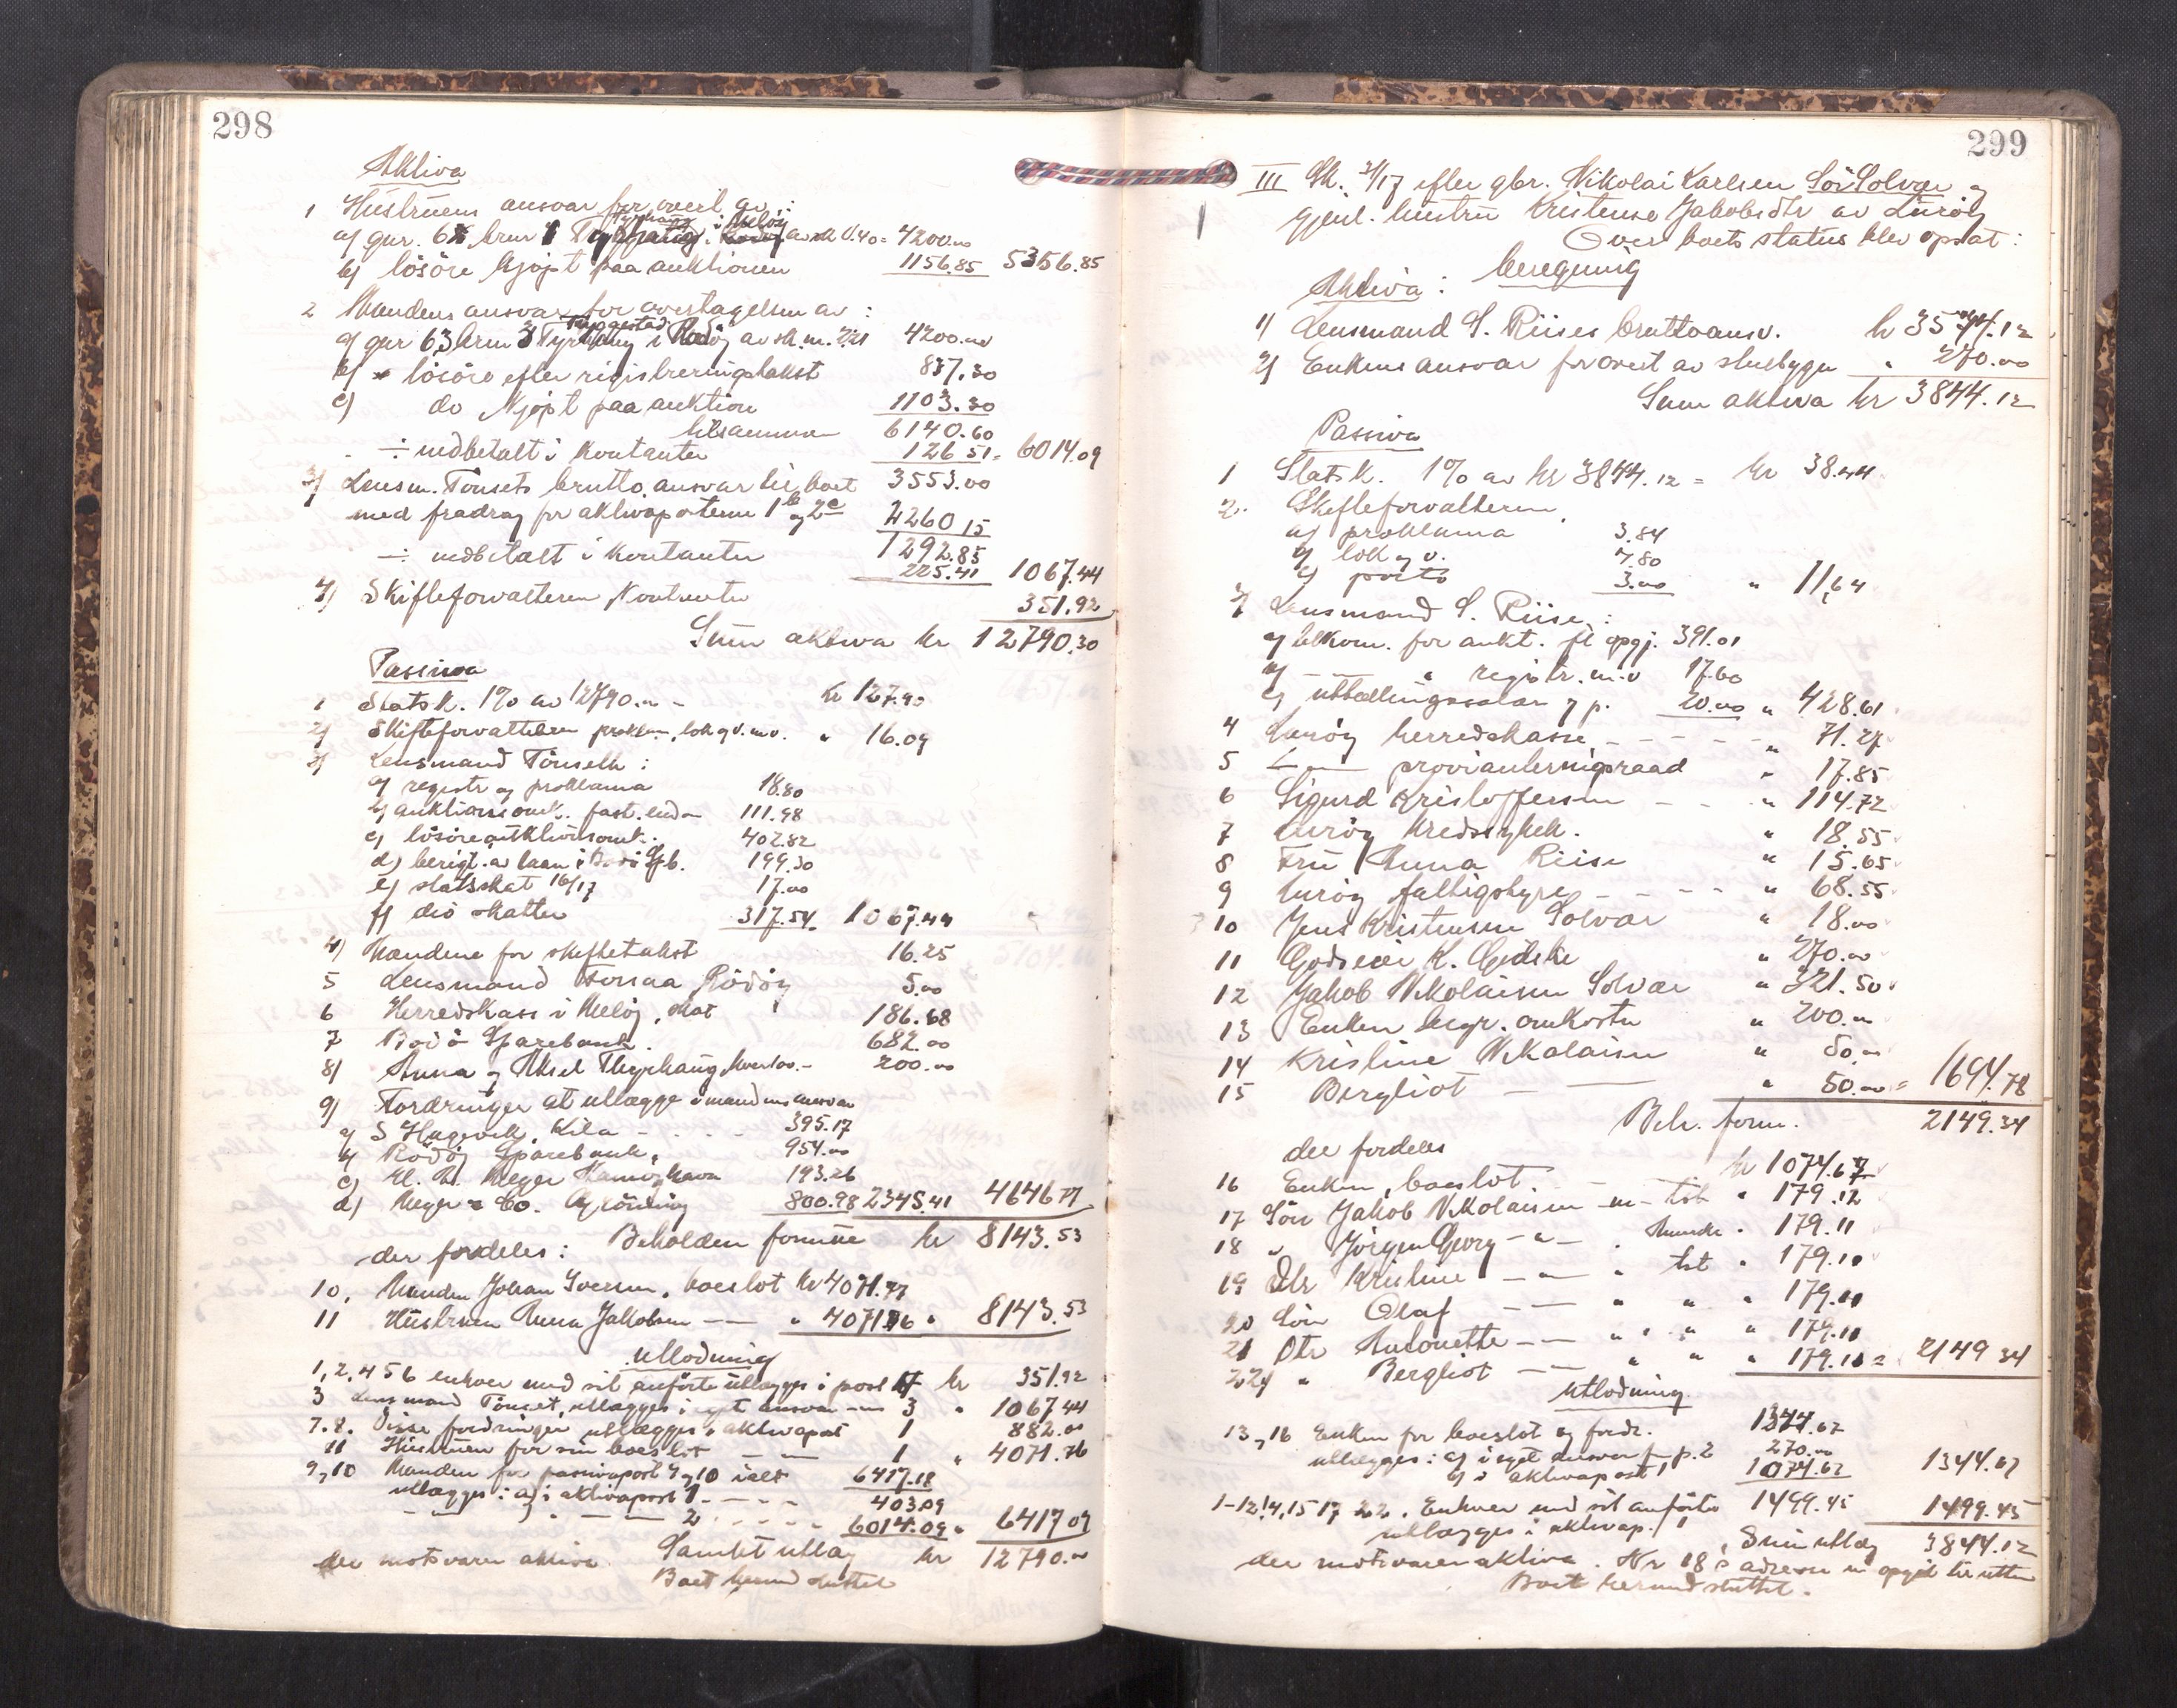 298
Aktiva
1 Hustruens ansvar for overt. av:
a) gnr. 6 brnr 1 i Meløy av sk m 0.40 = 4200.00
b) løsøre kjøpt paa auktionen 1156.85 5356.85
2 Mandens ansvar for overtagelsen av:
a) gnr 63 brnr 3 i Rødøy av sk.m. 4200.00
b) løsøre efter registreringstakst 837.30
c) do kjøpt paa auktion 1103.30
tilsammen 6140.60
÷ indbetalt i kontanter 126.51 = 6014.09
3) Lensm. Tönsets brutto ansvar til boet 3553.00
med fradrag for aktivaposterne 1b og 2c 2260 15
1292.85
÷ indbetalt i kontanter 225.41 1067.44
4) Skifteforvalteren kontanter 351.92
Sum aktiva kr 12790.30
Passiva
1 Statsk. 1% av 12790.00 - kr 127.90
2) Skifteforvalteren proklam, lok og v. m.v. " 16.09
3) Lensmand Tönseth:
a) registr og proklama 18.80
b) auktionsomk. fast. eiend. 111.98
c) løsøreauktionsomk. 402.82
d) berigt. av laan i Bodö Spb. 199.30
e) statsskat 16/17 17.00
f) div skatter 317.54 1067.44
4) Mændene for skiftetakst 16.25
5 Lensmand Forsaa Rödöy 5.00
6 Herredskass i Meløy, skat 186.68
7 Bodö Sparebank. 682.00
8) Anna og Aksel Thyrhaug 200.00
9) Fordringer at utlægge i mandens ansvar
a) S Hagevik, Kila - - - 395.17
b) Rödöy Sparebank, 954.00
c) 193.26
d) Meyer & Co. 800.98 2345.41 4646 77
Beholden formue kr 8143.53
der fordeles:
10. Manden Johan Iversen, boeslot kr 4071.77
11 Hustruen Anna Jakobsen — " 4071.76 " 8143.53
Utlodning
1, 2, 4 5 6 enhver med sit anførte utlægges i post 4 kr 351.92
3 Lensmand Tönset, utlægges i eget ansvar 3 " 1067 44
7.8. Disse fordringer utlægges i aktivapost 1 882.00
11 Hustruen for sin boeslot — 1 " 4071.76
9, 10 Manden for passivapost 9 og 10 ialt 6417.18
utlægges: a) i aktivapost 1 - - - - 403.09
— — 2 - - - - 6014.09 " 6417 09
Samlet utlæg kr 12790.00
der motsvarer aktiva. Boet hermed sluttet
299
III Sk. 3/17 efter gbr. Nikolai Karlsen Sör Solvær og
gjenl. hustru Kristense Jakobsdtr av Luröy
Over boets status blev opsat:
beregning
Aktiva:
1) Lensmand S. Riises bruttoansv. kr 3574.12
2) Enkens ansvar for overt av stuebygn " 270.00
Sum aktiva kr 3844.12
Passiva
1 Statsk. 1% av kr 3844.12 = kr 38.44
2. Skifteforvalteren
a) proklama 3.84
b) lok og v. 7.80
c) porto 3.00 " 11,64
3) Lensmand S. Riise:
a) tilkom. for aukt. fl opgj. 391.01
b) — " registr. m.v 17.60
c) uttællingssalær og p. 20.00 " 428.61
4 Luröy herredskasse - - - - - " 71.27
5 —"— provianteringsraad " 17.85
6 Sigurd Kristoffersen - - " 114.72
7 Luröy kredssykek. " 18.55
8 Fru Anna Riise " 15.65
9 Luröy fattigstyre - - - - " 68.55
10 Jens Kristensen Solvær " 18.00
11 Godseier K. " 270.00
12 Jakob Nikolaisen Solvær " 321.50
13 Enken begr. omkostn " 200.00
14 Kristine Nikolaisen " 50.00
15 Bergliot — — " 50.00 = 1694.78
Beh. form. 2149.34
der fordeles
16 Enken, boeslot. - kr 1074.67
17 Sön Jakob Nikolaisen - m - tsk " 179.12
18 " Jörgen Georg —"— " 179.11
19 Dtr Kristine —"— " tst " 179.11
20 Sön Olaf — — " " " 179.11
21 Dtr Antonette — — " " " 179.11
22) " Bergliot — " " " 179.11 = 2149 34
Utlodning
13, 16 Enken for boeslot og fordr. 1344.67
utlægges: a) i eget ansvar p. 2 270.00
b) i aktivapost 1 1074.67 1344.67
1-12, 14, 15 17 22. Enhver med sit anførte 1499.45 1499.45
utlægges i aktivap. 1
Sum utlæg 3844.12
der motsvarer aktiva. Nr 18s adresse er opgit
Boet hermed sluttet.